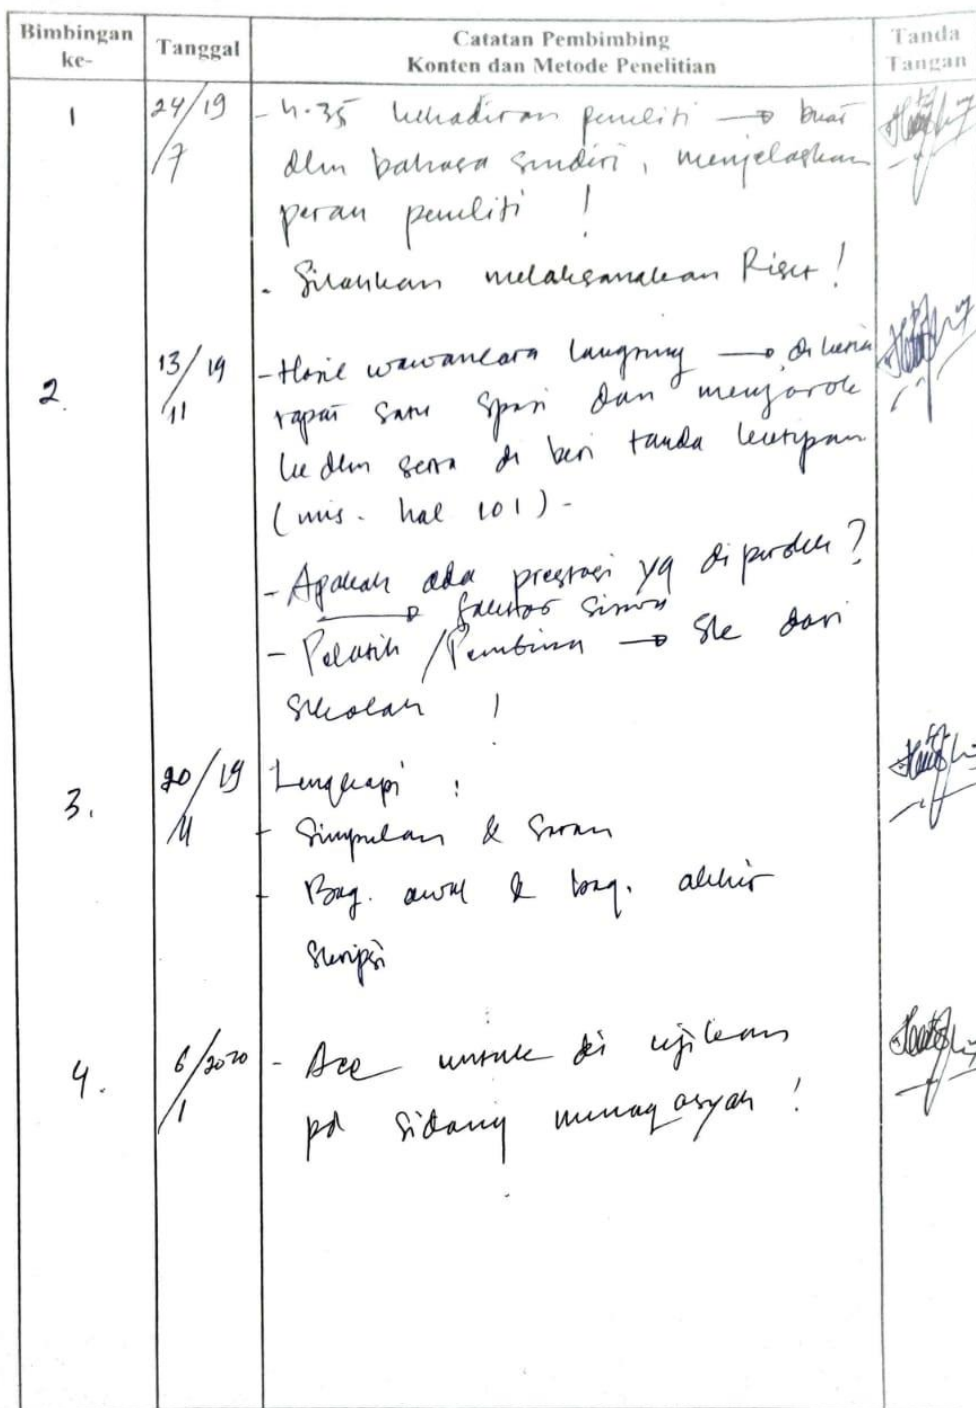 Bimbingan ke-
Tanggal
Catatan Pembimbing
Konten dan Metode Penelitian
Tanda Tangan
1
24/19
/7
- h.35 kehadiran peneliti → buat
dlm bahasa sendiri, menjelaskan
peran peneliti !
- Silahkan melaksanakan Riset !
2.
13/19
/11
- Hasil wawancara langsung →
rapat satu spasi dan menjorok
ke dlm serta di beri tanda kutipan
(mis. hal 101) -
- Apakah ada prestasi yg di peroleh ?
→ siswa
- Pelatih / Pembina → SK dari
sekolah !
3.
20/19
/11
Lengkapi :
- Simpulan & Saran
- Bag. awal & bag. akhir
skripsi
4.
6/2020
/1
- Acc untuk di ujikan
pd sidang munaqasyah !